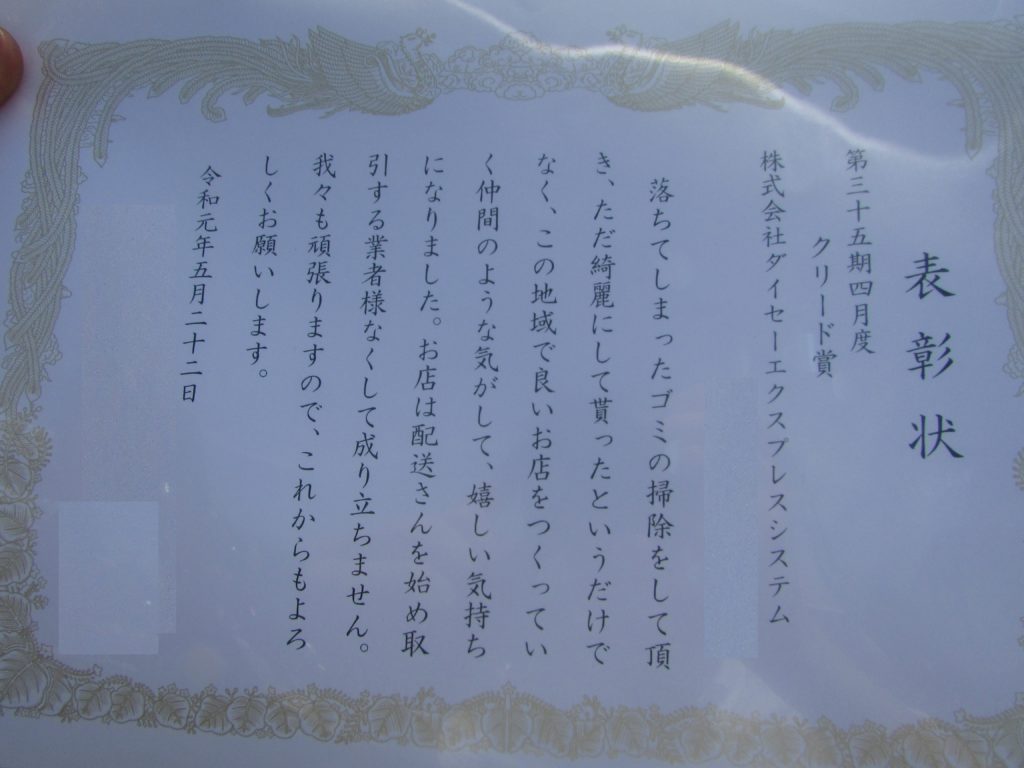 表彰状
第三十五期四月度
クリード賞
株式会社ダイセーエクスプレスシステム
落ちてしまったゴミの掃除をして頂
き、ただ綺麗にして貰ったというだけで
なく、この地域で良いお店をつくってい
く仲間のような気がして、嬉しい気持ち
になりました。お店は配送さんを始め取
引する業者様なくして成り立ちません。
我々も頑張りますので、これからもよろ
しくお願いします。
令和元年五月二十二日